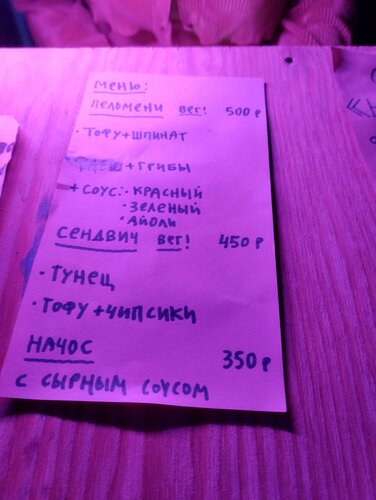 меню:
пелОмени вег! 500 р
• тофу + шпинат
+ грибы
+ соус: • красный
• зеленый
• айоли
сендвич вег! 450 р
• тунец
• тофу + чипсики
начос 350 р
с сырным соусом